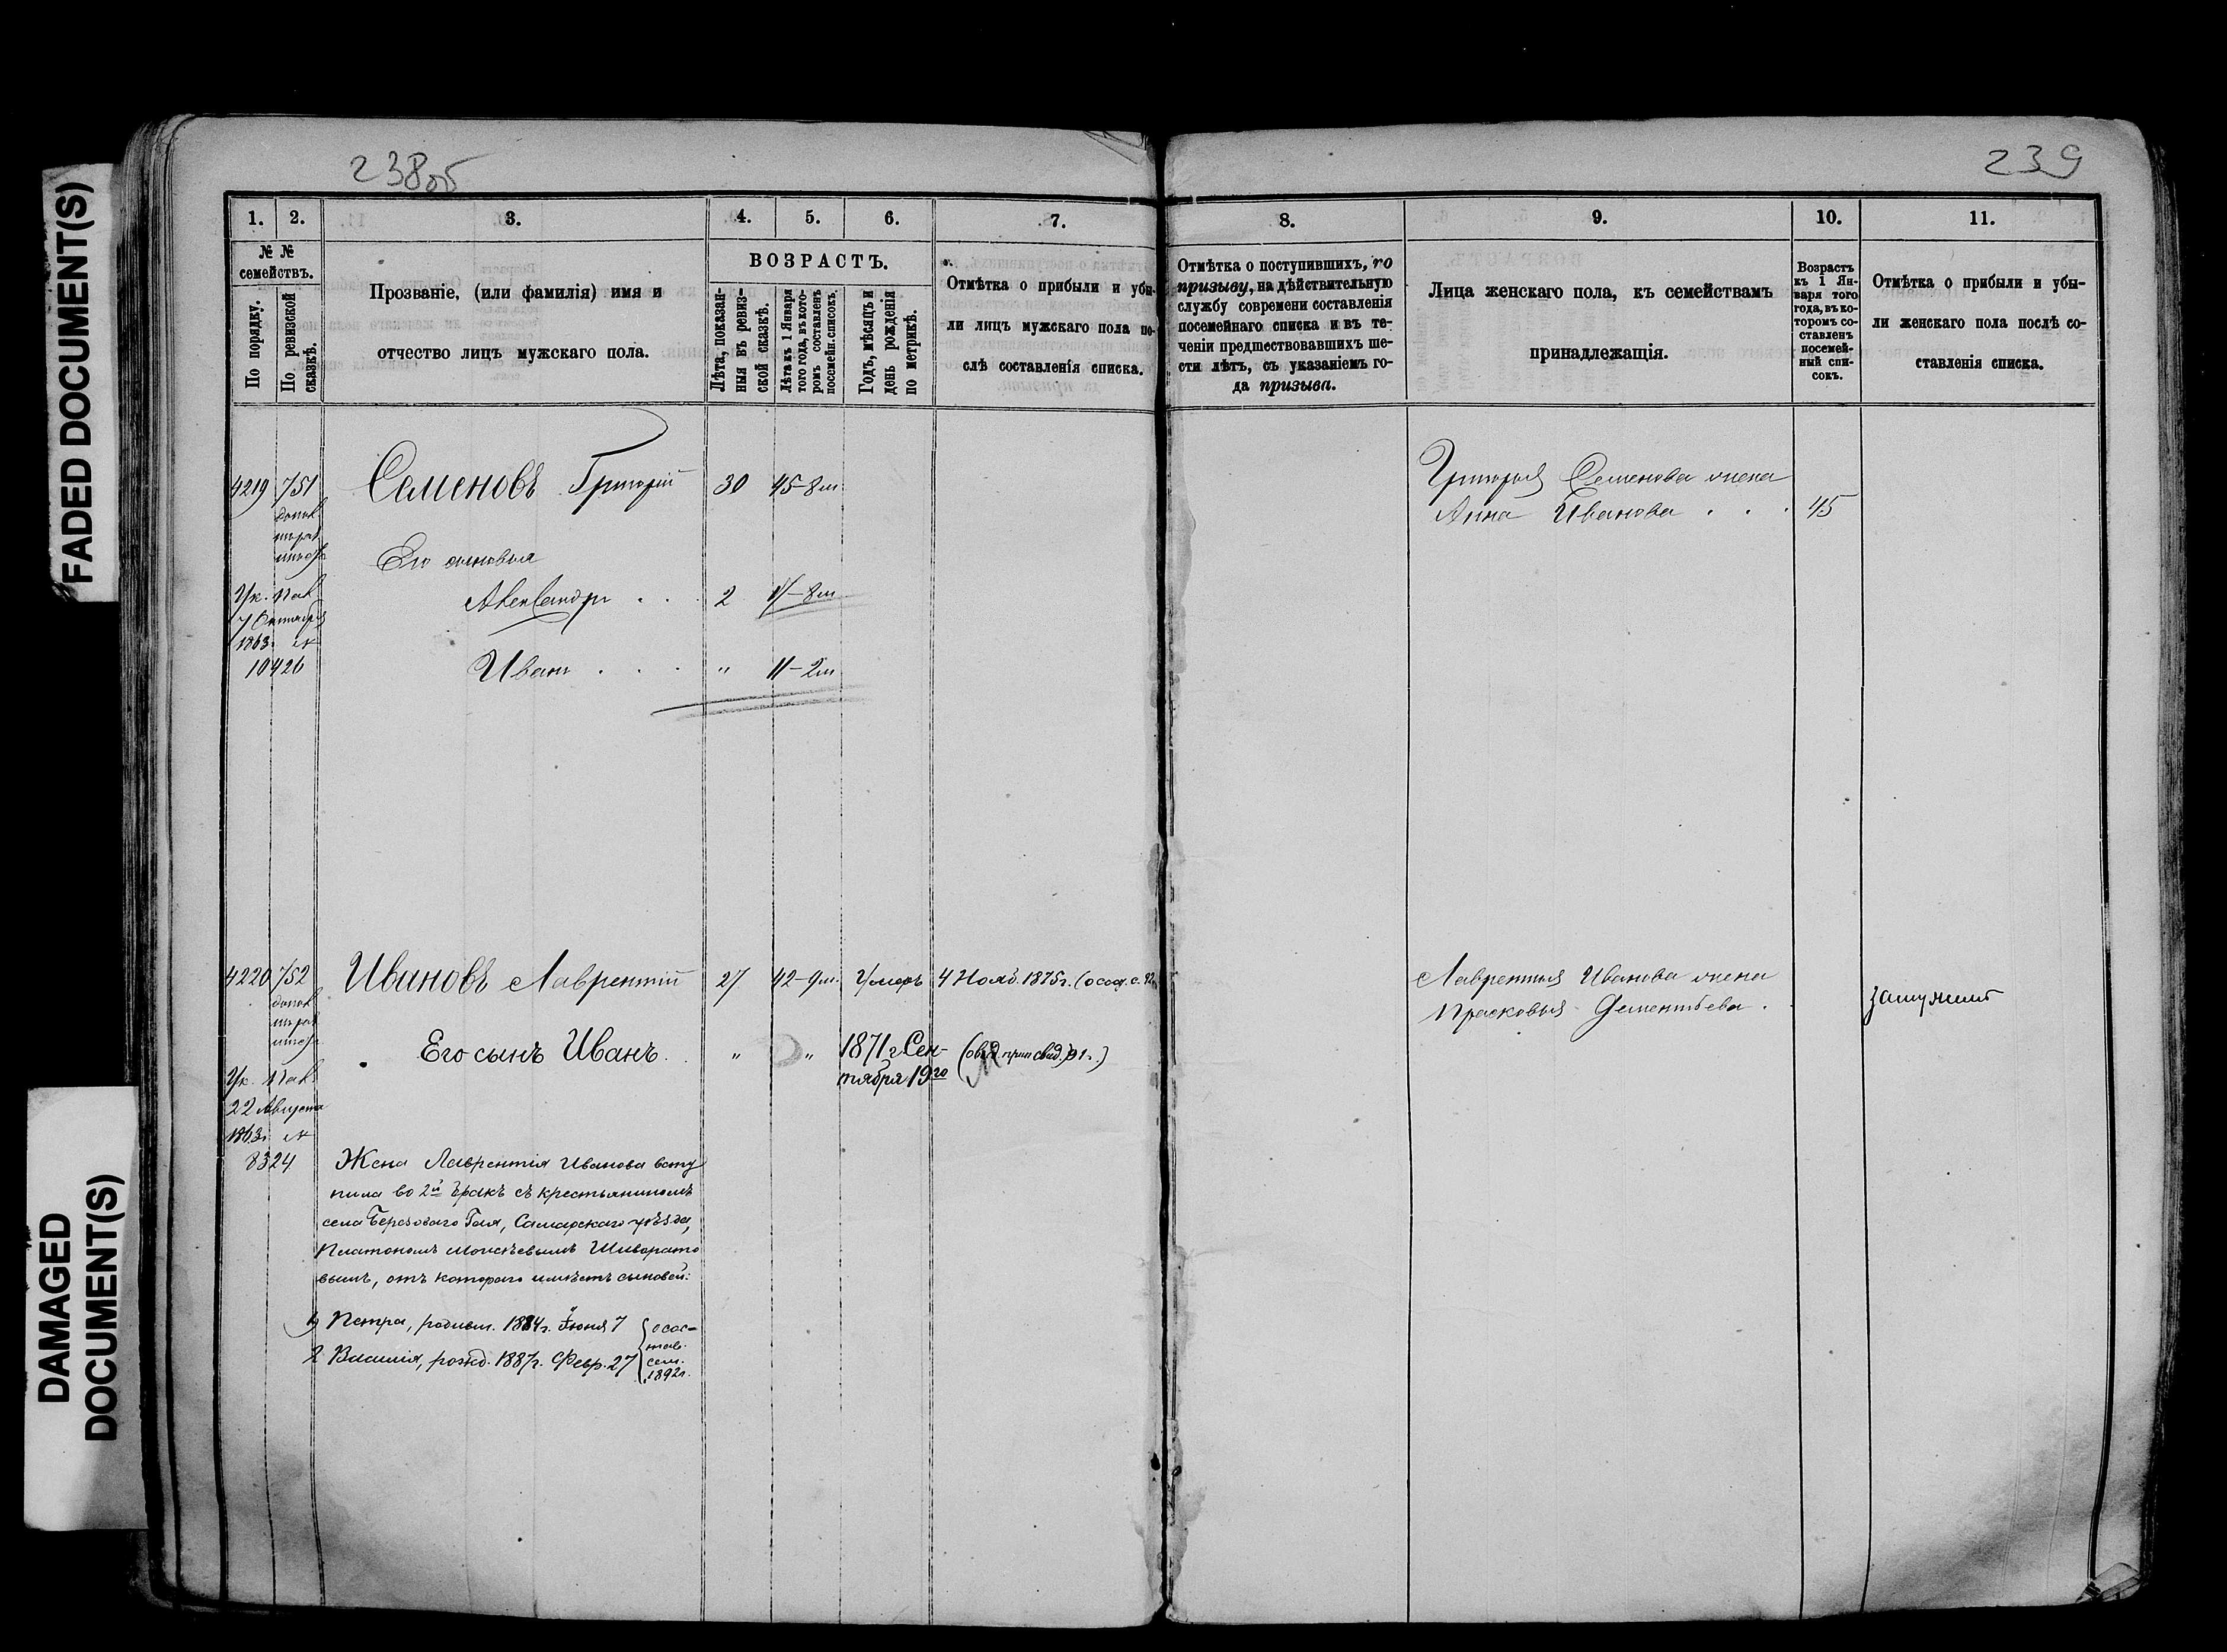 FADED DOCUMENT(S)
DAMAGED
DOCUMENT(S)
238об
1.
2.
3.
4.
5.
6.
7.
№ №
семействъ.
По порядку.
По ревизской
сказкѣ.
Прозваніе, (или фамилія) имя и
отчество лицъ мужскаго пола.
ВОЗРАСТЪ.
Лѣта, показан-
ныя въ ревиз-
ской сказкѣ.
Лѣта къ 1 Января
того года, въ кото-
ромъ составленъ
посемейн. списокъ.
Годъ, мѣсяцъ и
день рожденія
по метрикѣ.
Отмѣтка о прибыли и убы-
ли лицъ мужскаго пола по-
слѣ составленія списка.
4219 751
Семеновъ Григорій 30 45-8м
Его сыновья
Ук. Пал.
Александръ . . 2 17-8м
7 Октября
1863г. №
10426
Иванъ . . . " 11-2м
4220 752
Ивановъ Лаврентій 27 42-9м. Умеръ 4 Нояб. 1875г.
Его сынъ Иванъ . . " " 1871г Сен-
тября 19го
Ук. Пал.
22 Августа
1863г. №
8324
Жена Лаврентія Иванова всту
пила во 2й бракъ съ крестьяниномъ
села Березоваго Гая, Самарскаго уѣзда,
Платономъ Моисѣевымъ Шиворато
вымъ, отъ котораго имѣетъ сыновей:
1) Петра, родивш. 1884г. Іюня 7
2 Василія, рожд. 1887г. Февр. 27
о сос-
тав.
сем.
1892г.
239
8.
9.
10.
11.
Отмѣтка о поступившихъ, по
призыву, на дѣйствительную
службу современи составленія
посемейнаго списка и въ те-
ченіи предшествовавшихъ ше-
сти лѣтъ, съ указаніемъ го-
да призыва.
Лица женскаго пола, къ семействамъ
принадлежащія.
Возрастъ
къ 1 Ян-
варя того
года, въ ко-
торомъ со-
ставленъ
посемей-
ный спи-
сокъ.
Отмѣтка о прибыли и убы-
ли женскаго пола послѣ со-
ставленія списка.
Григорья Семенова жена
Анна Иванова . . . 45
Лаврентья Иванова жена
Прасковья Дементьева .
замужемъ